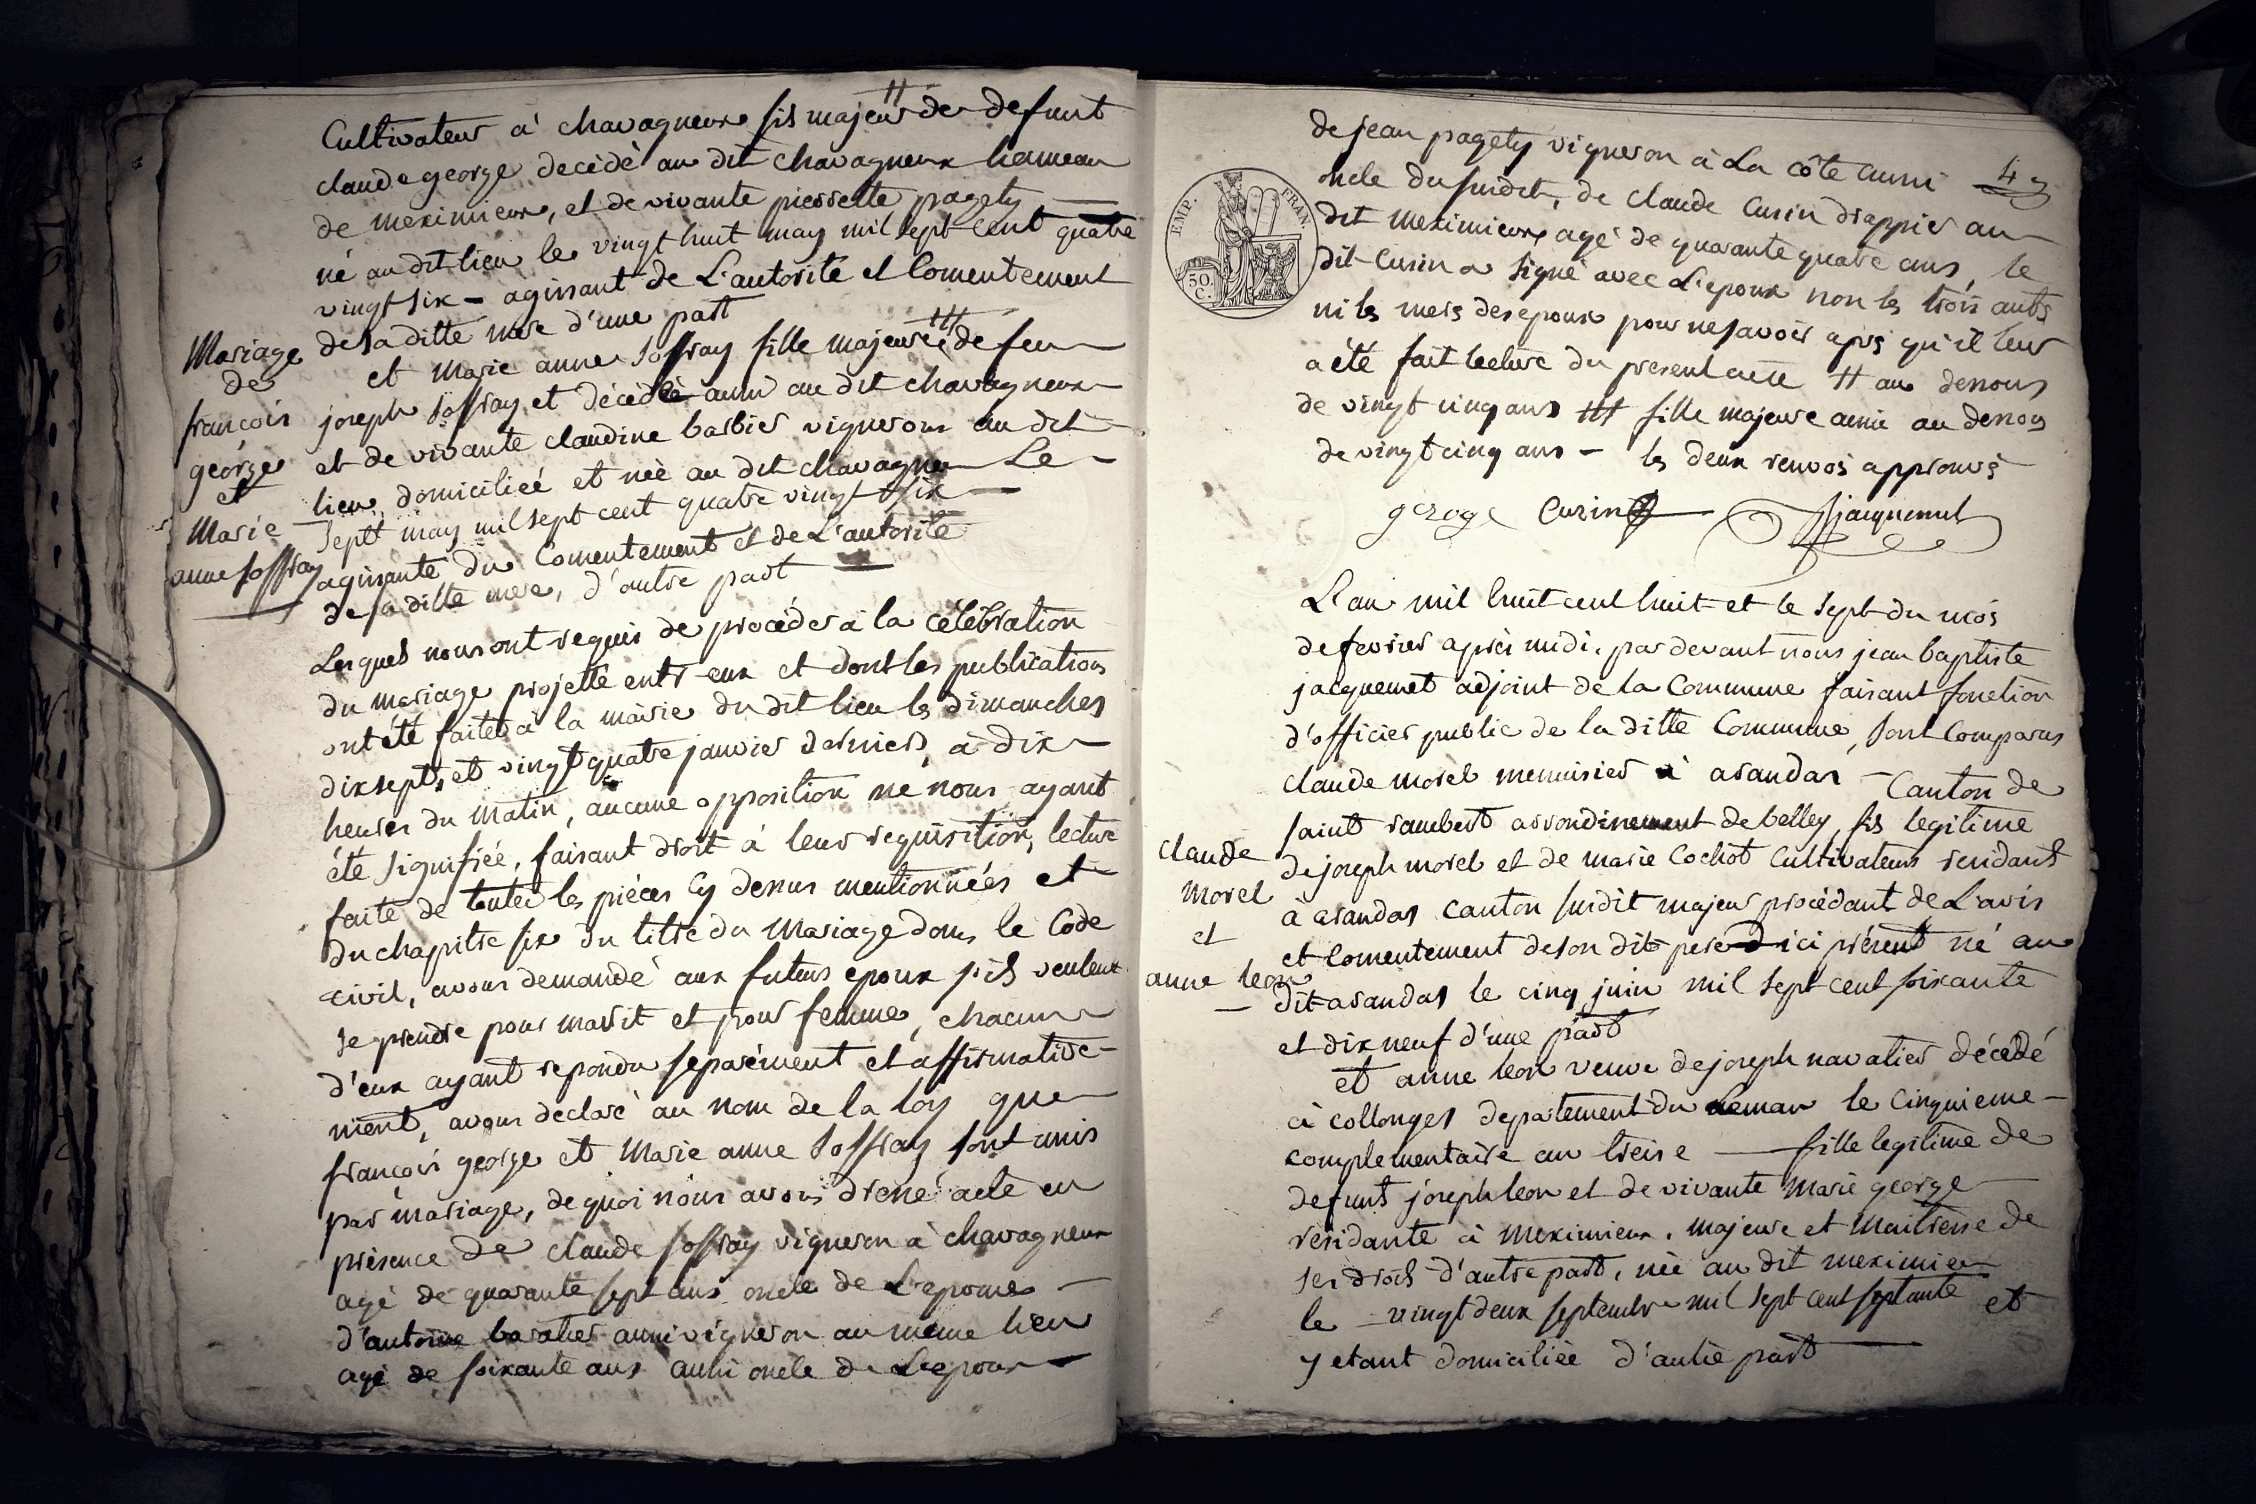 Cultivateur à chavagneux fils majeur # de defunt
claude george decédé au dit chavagneux hameau
de meximieux, et de vivante pierrette pagety
né au dit lieu le vingt huit may mil sept cent quatre
vingt six - agissant de L'autorité et Consentement
de sa ditte mere d'une part
Mariage
de
françois
george
et
Marie
anne soffray
et Marie anne Soffray fille majeure ### de feu
joseph Soffray et décédé aussi au dit chavagneux
et de vivante claudine barbier vignerons au dit
lieu, domiciliéé et née au dit chavagneux Le
Sept may mil sept cent quatre vingt six
agissante du Consentement et de L'autorité
de sa ditte mere, d'autre part
Lesquels nous ont requis de procéder à la célébration
du mariage projetté entr eux et dont les publications
ont été faites à la mairie du dit lieu les dimanches
dix sept, et vingt quatre janvier derniers, à dix
heures du Matin, aucune opposition ne nous ayant
été signifiée, faisant droit à leur requisition, lecture
faite de toutes les piéces Cy dessus mentionnées et
du chapitre six du titre du Mariage dans le Code
civil, avons demandé aux futurs epoux s'ils veulent
se prendre pour marit et pour femme, chacun
d'eux ayant repondu separément et affirmative-
ment, avons déclaré au nom de la loy que
françois george et Marie anne Soffray sont unis
par mariage, de quoi nous avons dréné acte en
présence de claude soffray vigneron à chavagneux
agé de quarante sept ans oncle de L'epouse
d'antoine baratier aussi vigneron au même lieu
agé de soixante ans aussi oncle de L'epoux
EMP. FRAN.
50 C.
de jean pagety vigneron à La côte aussi
oncle du susdit, de claude Cusin drappier au
dit meximieux agé de quarante quatre ans, le
dit Cusin a signé avec L'epoux non les trois auts
ni les meres des epoux pour ne savoir aprés qu'il leur
a été fait lecture du present acte # au dessous
de vingt cinq ans ### fille majeure aussi au dessous
de vingt cinq ans - les deux renvois approuvés
gezoge Cuzin Jjacquemet
L'an mil huit cent huit et le sept du mois
de fevrier aprés midi, par devant nous jean baptiste
jacquemet adjoint de la Commune faisant fonction
d'officier public de la ditte Commune, sont Comparus
claude morel menuisier à arandas - Canton de
saint rambert arrondissement de belley, fils legitime
claude
morel
et
anne leon
de joseph morel et de marie Cochot Cultivateurs residants
à arandas canton susdit majeur procédant de L'avis
et Consentement de son dit pere ici présent né au
dit arandas le cinq juin mil sept cent soixante
et dix neuf d'une part
et anne leon veuve de joseph navatier décédé
à collonges departement du Leman le Cinquieme
complementaire an treise fille legitime de
defunt joseph leon et de vivante Marie george
résidante à meximieux, majeure et Maitresse de
ses droits d'autre part, née au dit meximieu
le vingt deux septembre mil sept cent septante et
y etant domiciliée d'autre part